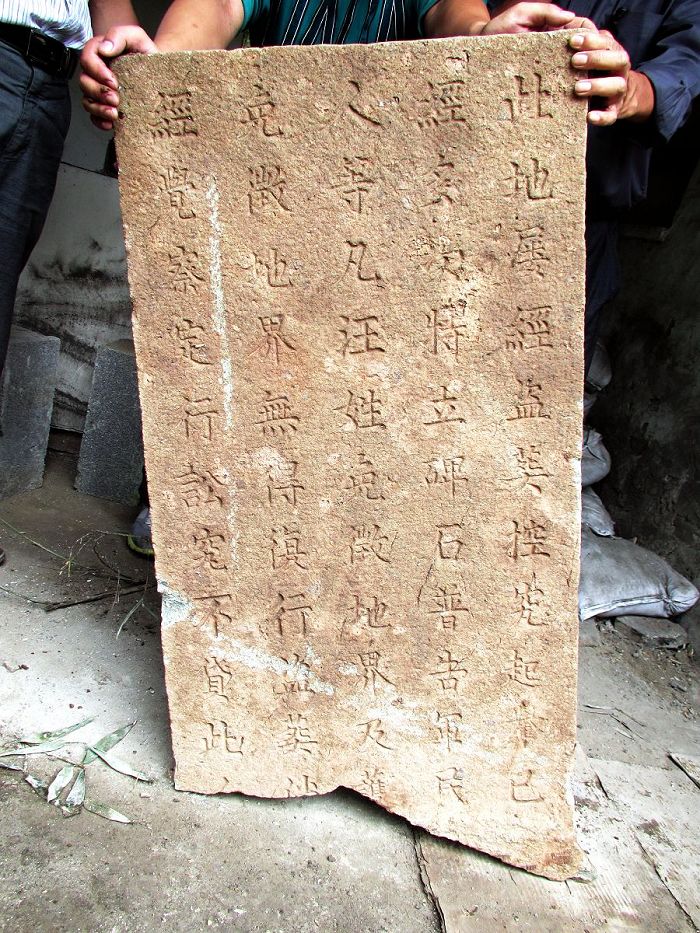 此地屢經盗葬控究起已
經立碑石普告軍民
人等凡汪姓免徵地界及
免徵地界無得行盗葬
經覺察定行訟究不貸此